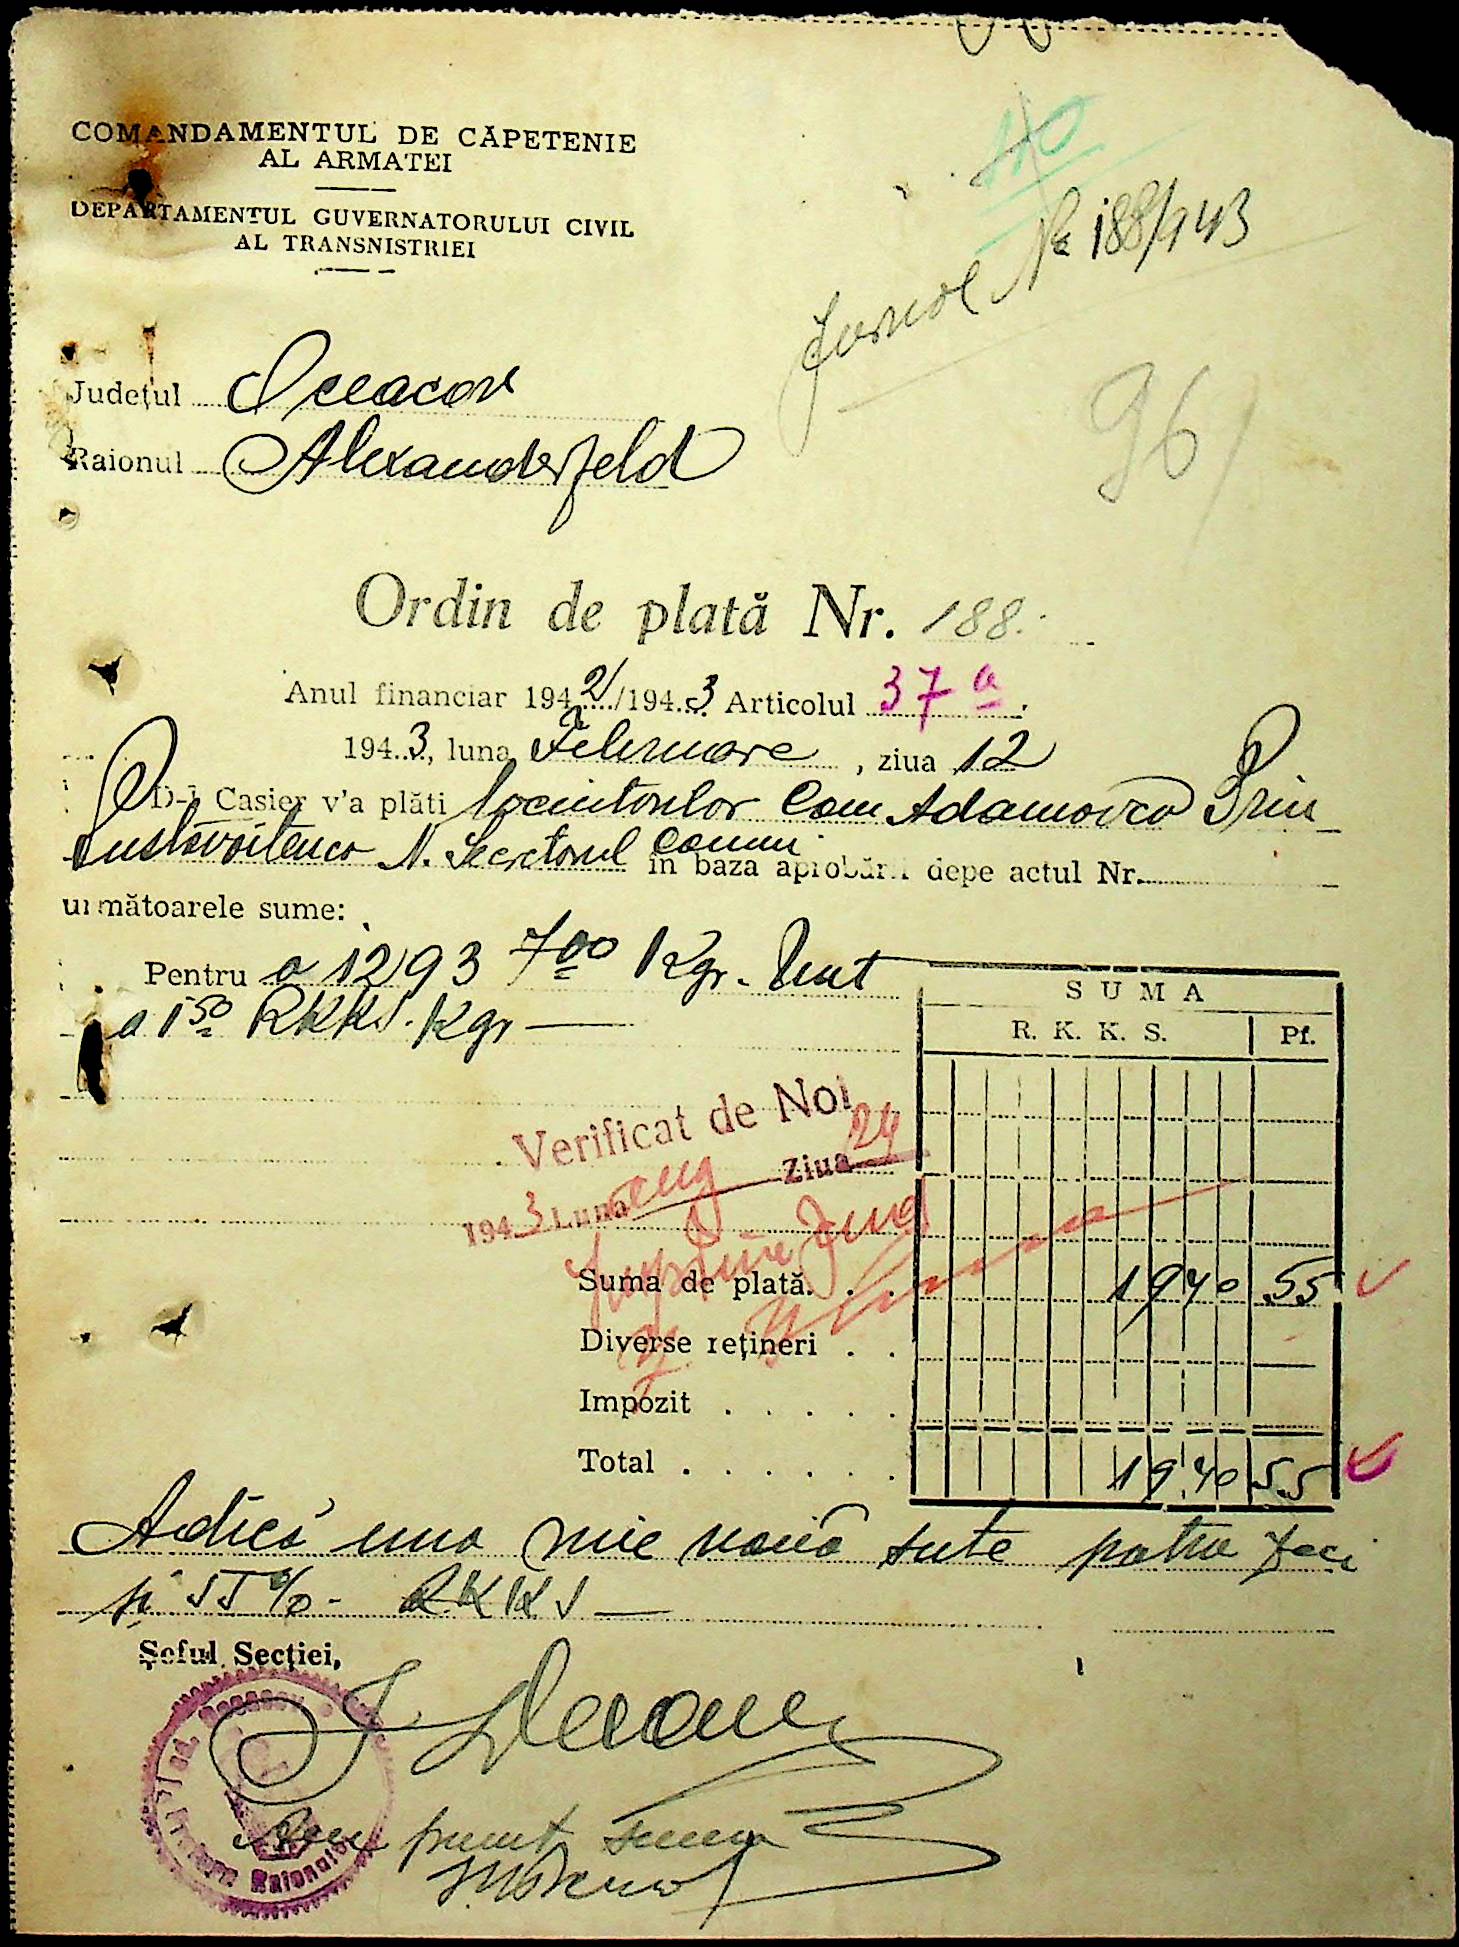 COMANDAMENTUL DE CĂPETENIE
AL ARMATEI
DEPARTAMENTUL GUVERNATORULUI CIVIL
AL TRANSNISTRIEI
110
Jurnal № 188/943
96
Județul Oceacov
Raionul Alexanderfeld
Ordin de plată Nr. 188.
Anul financiar 1942/1943 Articolul 37 a
1943, luna Februarie, ziua 12
D-l Casier v'a plăti locuitorilor Com Adamovca Prin
N. Secretarul Comun în baza aprobării depe actul Nr.
următoarele sume:
Pentru a 1293 700 Kgr. Unt
a 1 50 RKKS. Kgr
SUMA
R. K. K. S. Pf.
Verificat de Noi
1943 Luna Aug Ziua 24
Suma de plată. . . 1940 55
Diverse rețineri . .
Impozit . . . . .
Total . . . . . . 1940 55
Adică una mie nouă sute patru zeci
și 55 % - RKKS
Șeful Secției,
Jud. Oceacov
Pretura Raională
Am primit suma